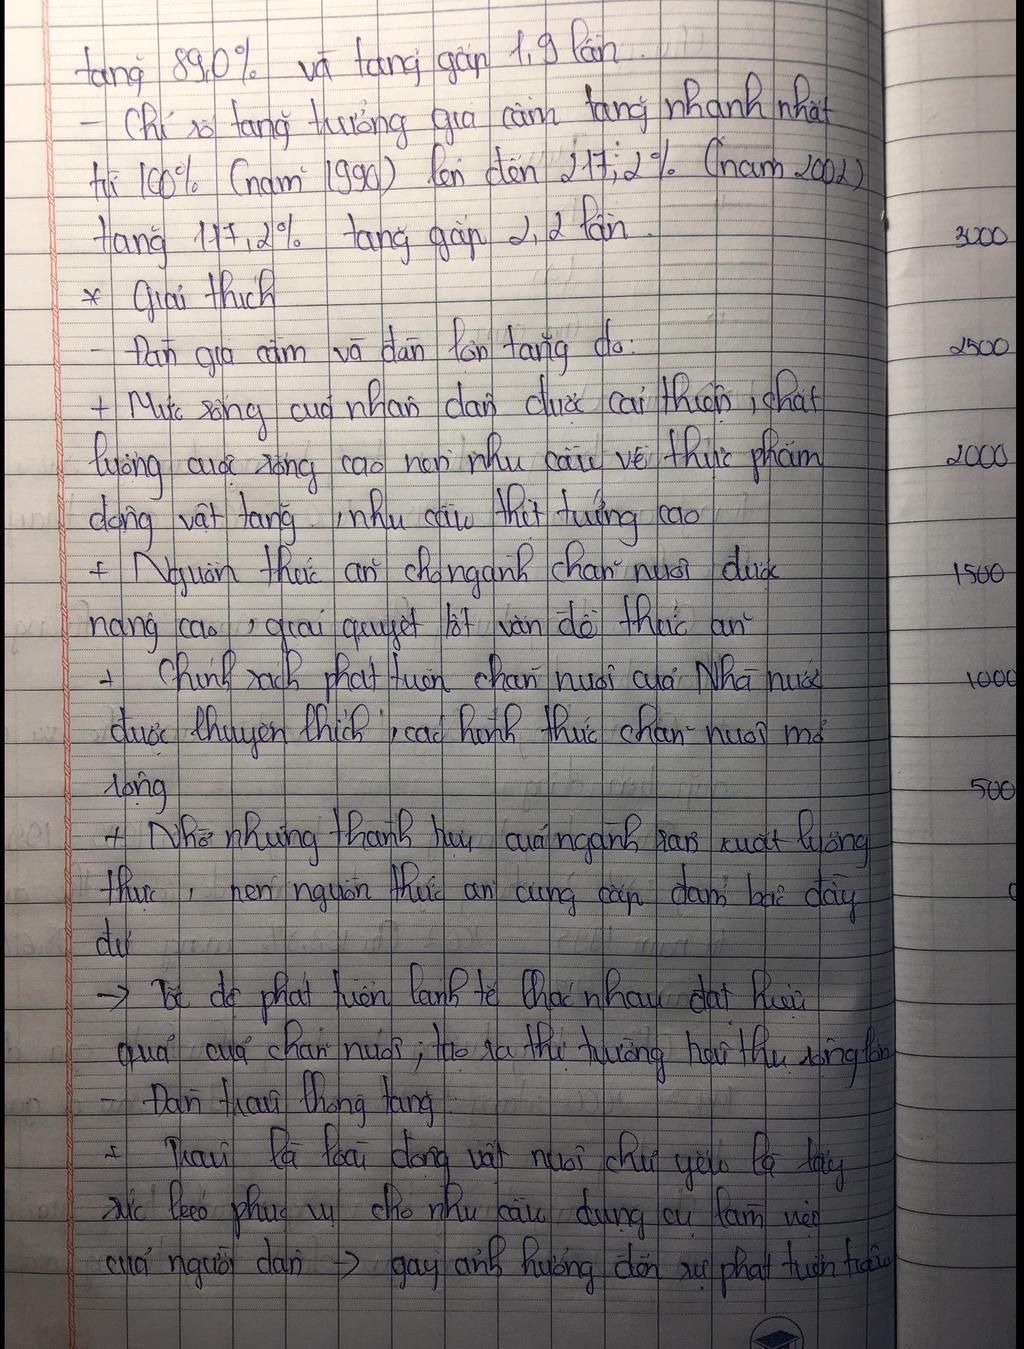 tăng 89,0% và tăng gấp 1,9 lần.
- Chỉ số tăng trưởng gia cầm tăng nhanh nhất
từ 100% (năm 1990) lên đến 217,2% (năm 2002)
tăng 117,2% tăng gấp 2,2 lần.
* Giải thích
- Đàn gia cầm và đàn lợn tăng do:
+ Mức sống của nhân dân được cải thiện, chất
lượng cuộc sống cao nên nhu cầu về thực phẩm
động vật tăng, nhu cầu thịt trứng cao
+ Nguồn thức ăn cho ngành chăn nuôi được
nâng cao, giải quyết tốt vấn đề thức ăn
+ Chính sách phát triển chăn nuôi của Nhà nước
được khuyến khích, các hình thức chăn nuôi mở
rộng
+ Nhờ những thành tựu của ngành sản xuất lương
thực, nên nguồn thức ăn cung cấp đảm bảo đầy
đủ
-> để phát triển kinh tế khác nhau đạt hiệu
quả của chăn nuôi, tạo ra thị trường tiêu thụ rộng lớn
- Đàn trâu không tăng
+ Trâu là loài động vật nuôi chủ yếu là lấy
sức kéo phục vụ cho nhu cầu dụng cụ làm việc
của người dân -> gây ảnh hưởng đến sự phát triển trâu
3000
2500
2000
1500
1000
500
0